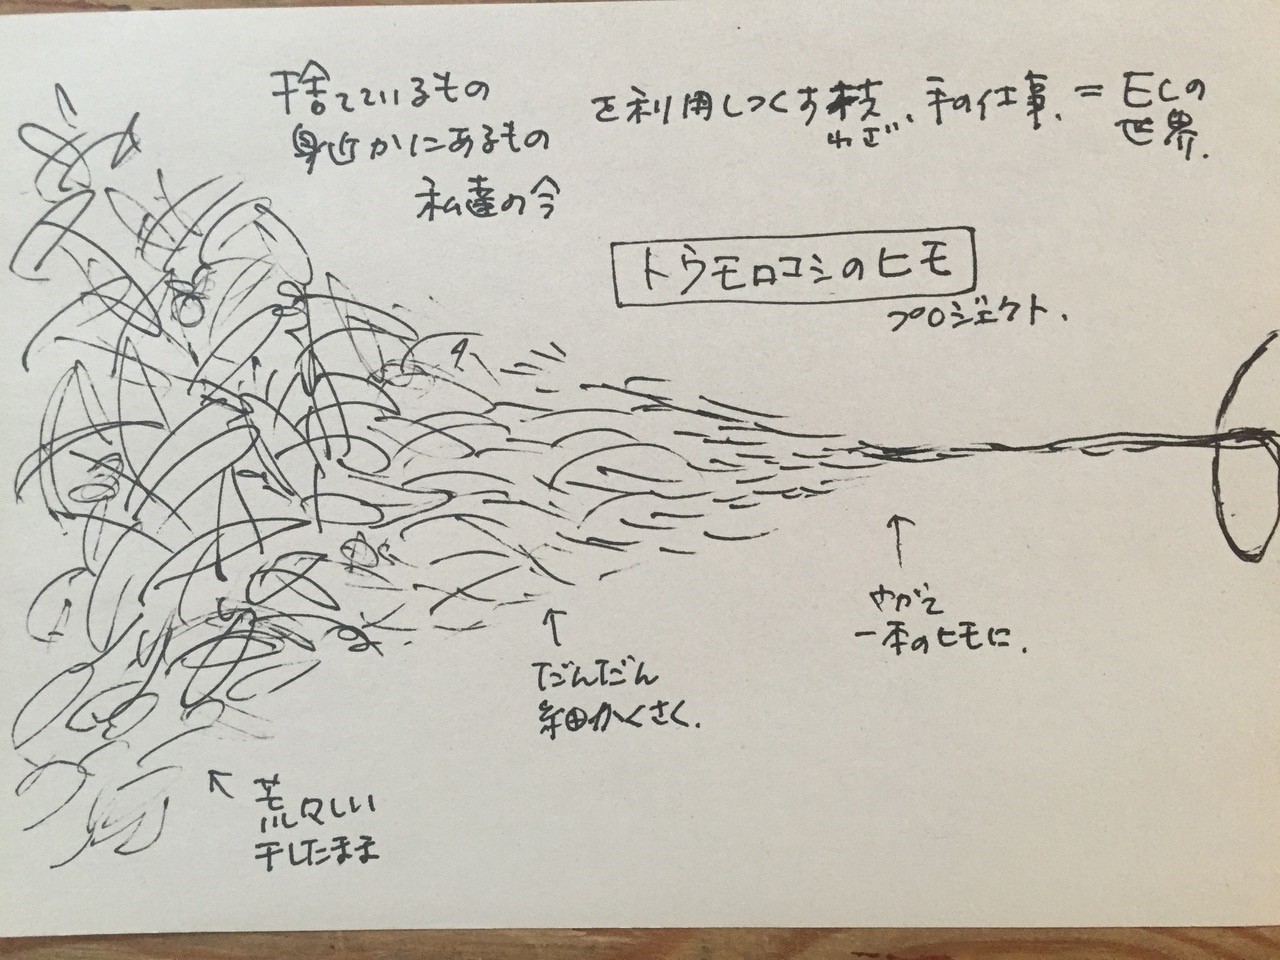 捨てているもの
身近かにあるもの
私達の今
を利用しつくす技、手の仕事. = ECの
わざ
世界.
トウモロコシのヒモ
プロジェクト.
やがて
一本のヒモに.
だんだん
細かくさく.
荒々しい
干したまま